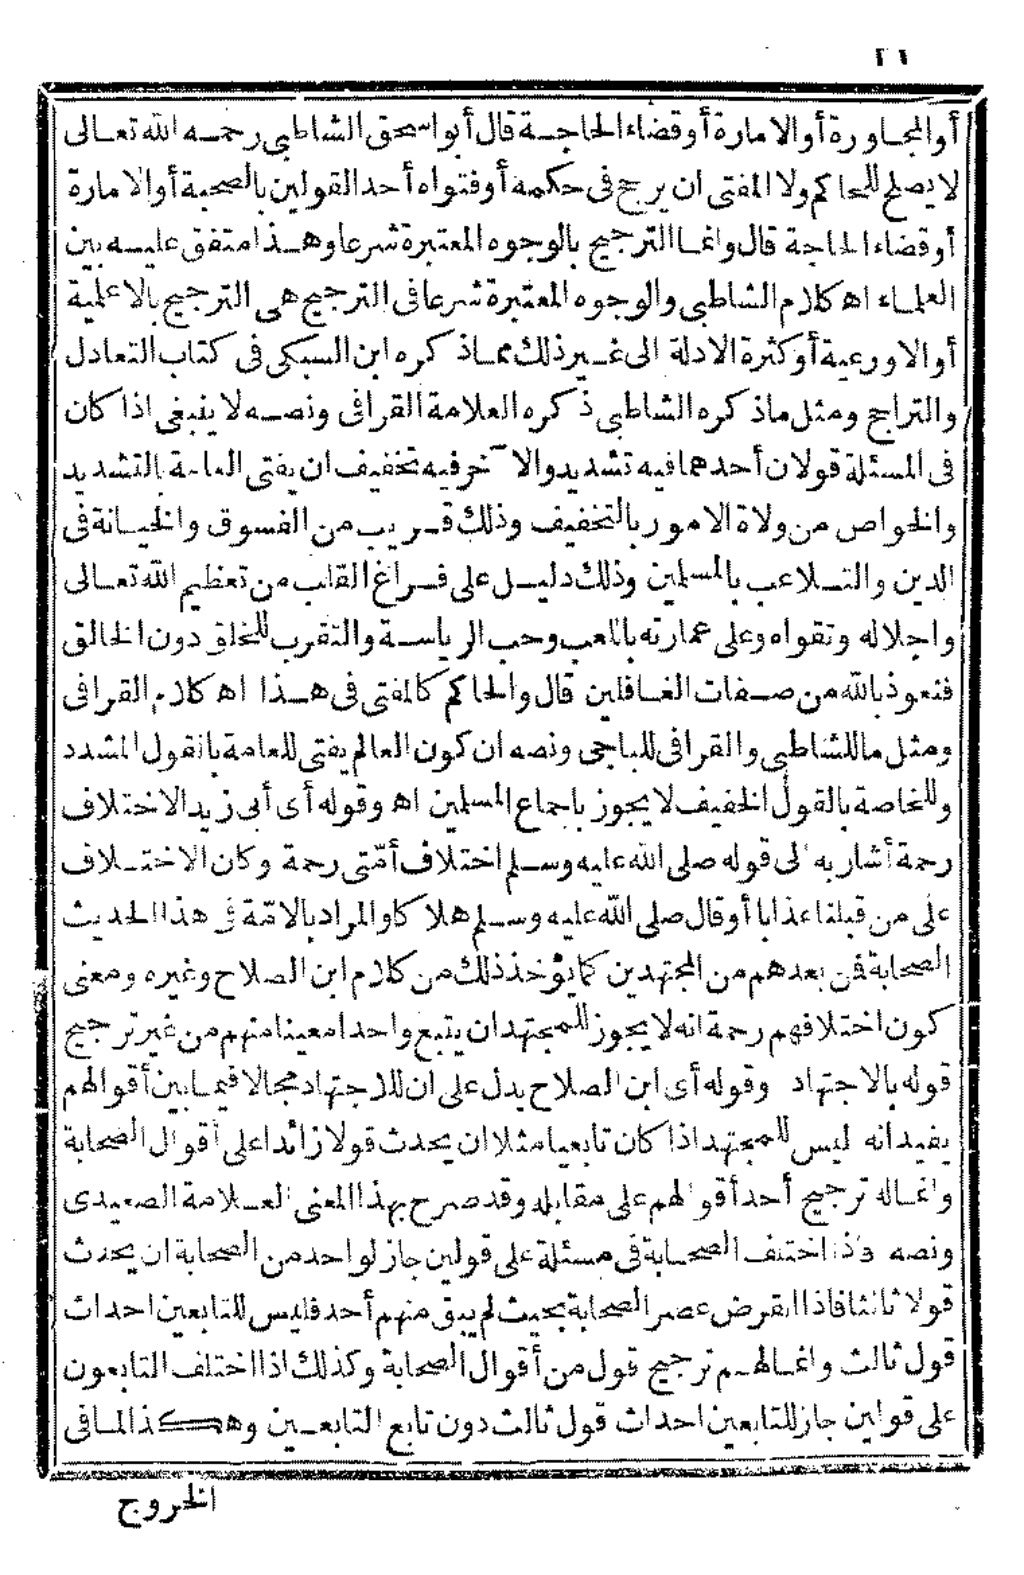 ٢٦
أو المجاورة أو الامارة أو قضاء الحاجة قال أبو اسحق الشاطبي رحمه الله تعالى
لا يصلح للحاكم ولا المفتى ان يرجح فى حكمه أو فتواه أحد القولين بالصحبة أو الامارة
أو قضاء الحاجة قال وانما الترجيح بالوجوه المعتبرة شرعا وهذا متفق عليه بين
العلماء اه كلام الشاطبى والوجوه المعتبرة شرعا فى الترجيح هى الترجيح بالاعلمية
أو الاورعية أو كثرة الادلة الى غير ذلك مماذ كره ابن السبكى فى كتاب التعادل
والتراجح ومثل ماذ كره الشاطبى ذ كره العلامة القرافى ونصه لا ينبغى اذا كان
فى المسئلة قولان أحدهما فيه تشديد والا خر فيه تخفيف ان يفتى العامة بالتشديد
والخواص من ولاة الامور بالتخفيف وذلك قريب من الفسوق والخيانة فى
الدين والتلاعب بالمسلمين وذلك دليل على فراغ القلب من تعظيم الله تعالى
واجلاله وتقواه وعلى عمارته باللعب وحب الرياسة والتقرب للخلق دون الخالق
فنعوذ بالله من صفات الغافلين قال والحاكم كالمفتى فى هذا اه كلام القرافى
ومثل ما للشاطبى والقرافى للباجى ونصه ان كون العالم يفتى للعامة بالقول المشدد
وللخاصة بالقول الخفيف لا يجوز باجماع المسلمين اه وقوله أى أبى زيد الاختلاف
رحمة أشار به الى قوله صلى الله عليه وسلم اختلاف أمّتى رحمة وكان الاختلاف
على من قبلنا عذابا أو قال صلى الله عليه وسلم هلا كا والمراد بالامّة فى هذا الحديث
الصحابة فمن بعدهم من المجتهدين كما يؤخذ ذلك من كلام ابن الصلاح وغيره ومعنى
كون اختلافهم رحمة انه لا يجوز للمجتهد ان يتبع واحدا معينا منهم من غير ترجيح
قوله بالاجتهاد وقوله أى ابن الصلاح يدل على ان للاجتهاد مجالا فيما بين أقوالهم
يفيد انه ليس للمجتهد اذا كان تابعيا مثلا ان يحدث قولا زائدا على أقوال الصحابة
وانما له ترجيح أحد أقوالهم على مقابله وقد صرح بهذا المعنى العلامة الصعيدى
ونصه واذا اختلف الصحابة فى مسئلة على قولين جاز لواحد من الصحابة ان يحدث
قولا ثالثا فاذا انقرض عصر الصحابة بحيث لم يبق منهم أحد فليس للتابعين احداث
قول ثالث وانما لهم ترجيح قول من أقوال الصحابة وكذلك اذا اختلف التابعون
على قولين جاز للتابعين احداث قول ثالث دون تابع التابعين وهكذا لما فى
الخروج